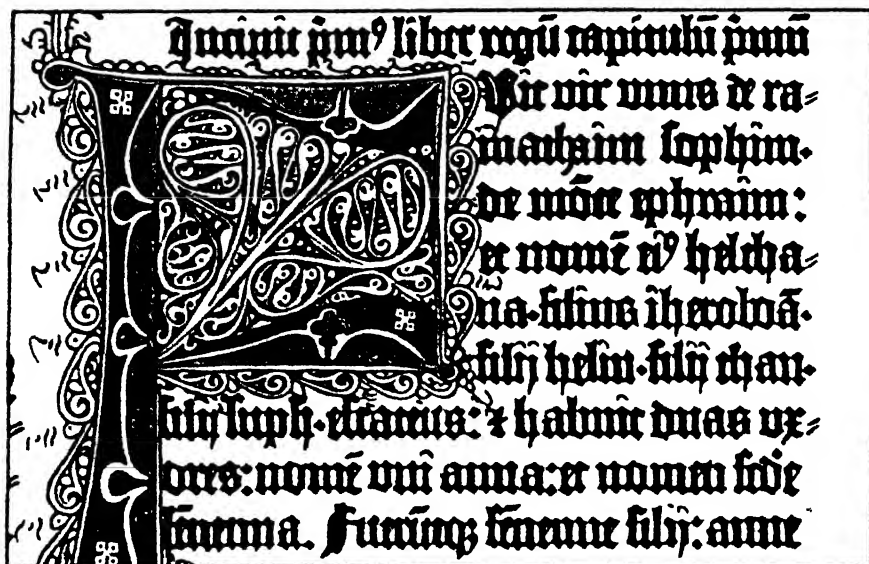 Incipit p̄mꝰ liber regū capitulū p̄mū
Fuit vir unus de ra⸗
mathaim sophim·
de mōte ephraim:
et nomē eiꝰ helcha⸗
na·filius iheroboā·
filij heliu·filij thau·
filij suph·effrateus: ⁊ habuit duas vx⸗
ores: nomē vni anna: et nomen scd̄e
fenenna. Fuerūtqꝫ fenenne filij: anne